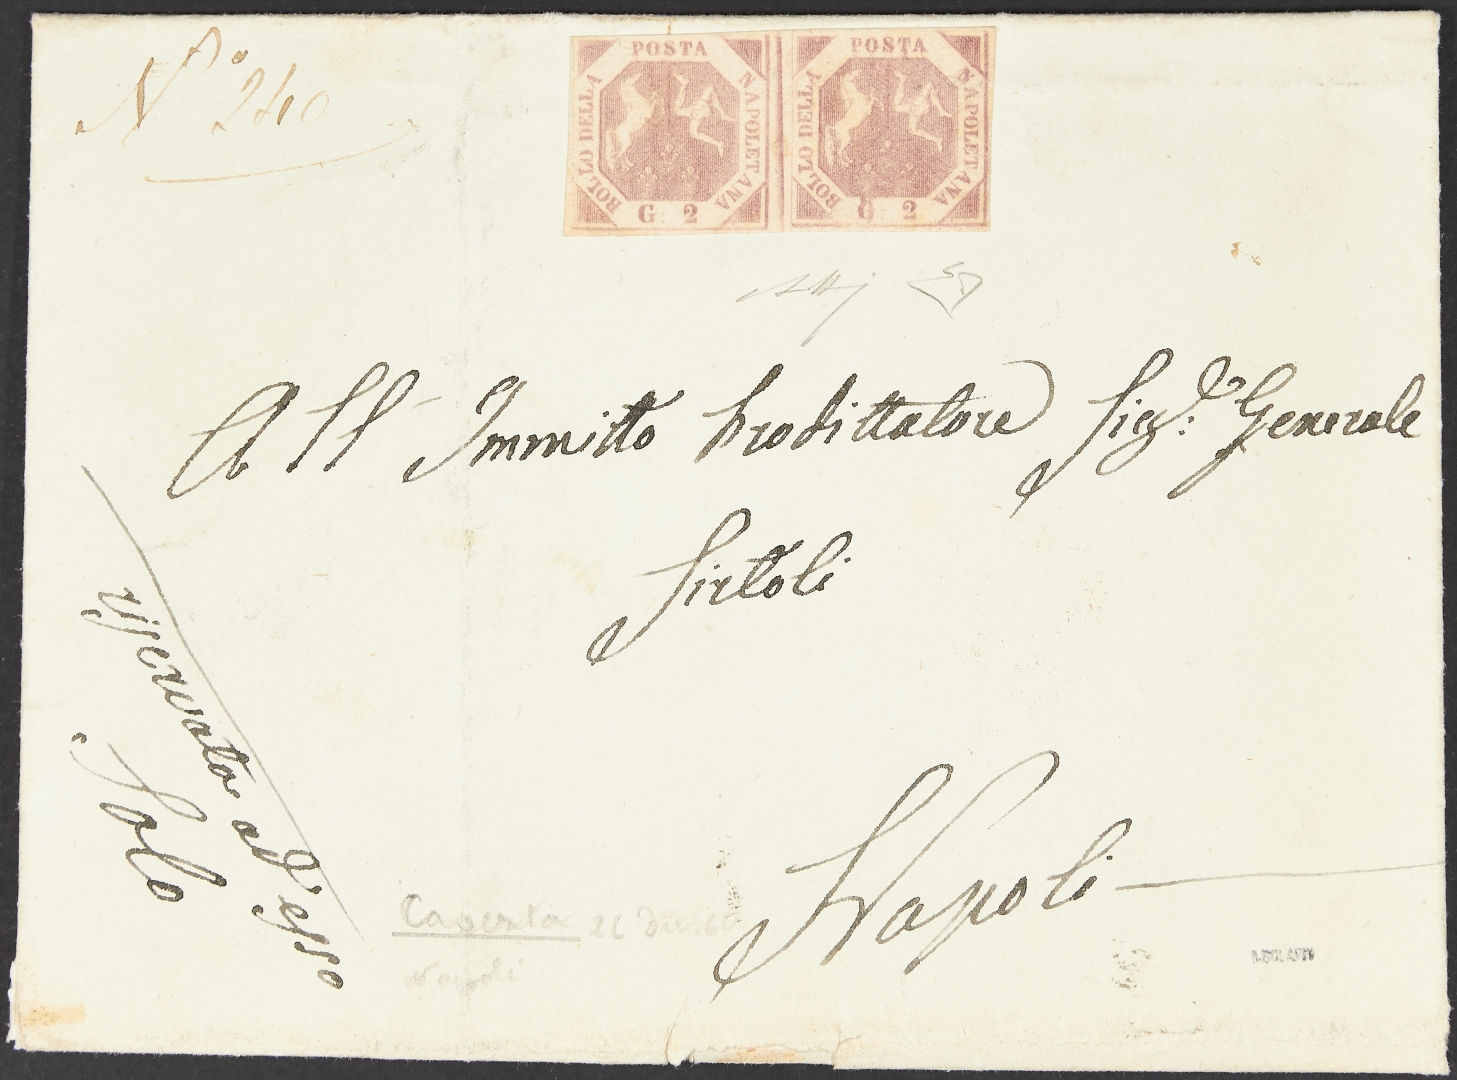 N° 240
POSTA
BOLLO DELLA
NAPOLETANA
G 2
POSTA
BOLLO DELLA
NAPOLETANA
G 2
All Immitto Prodittatore Sigr. Generale
Sirtoli
riservata ad'esso
Solo
Napoli
Caserta 26 Dic. 60
Napoli